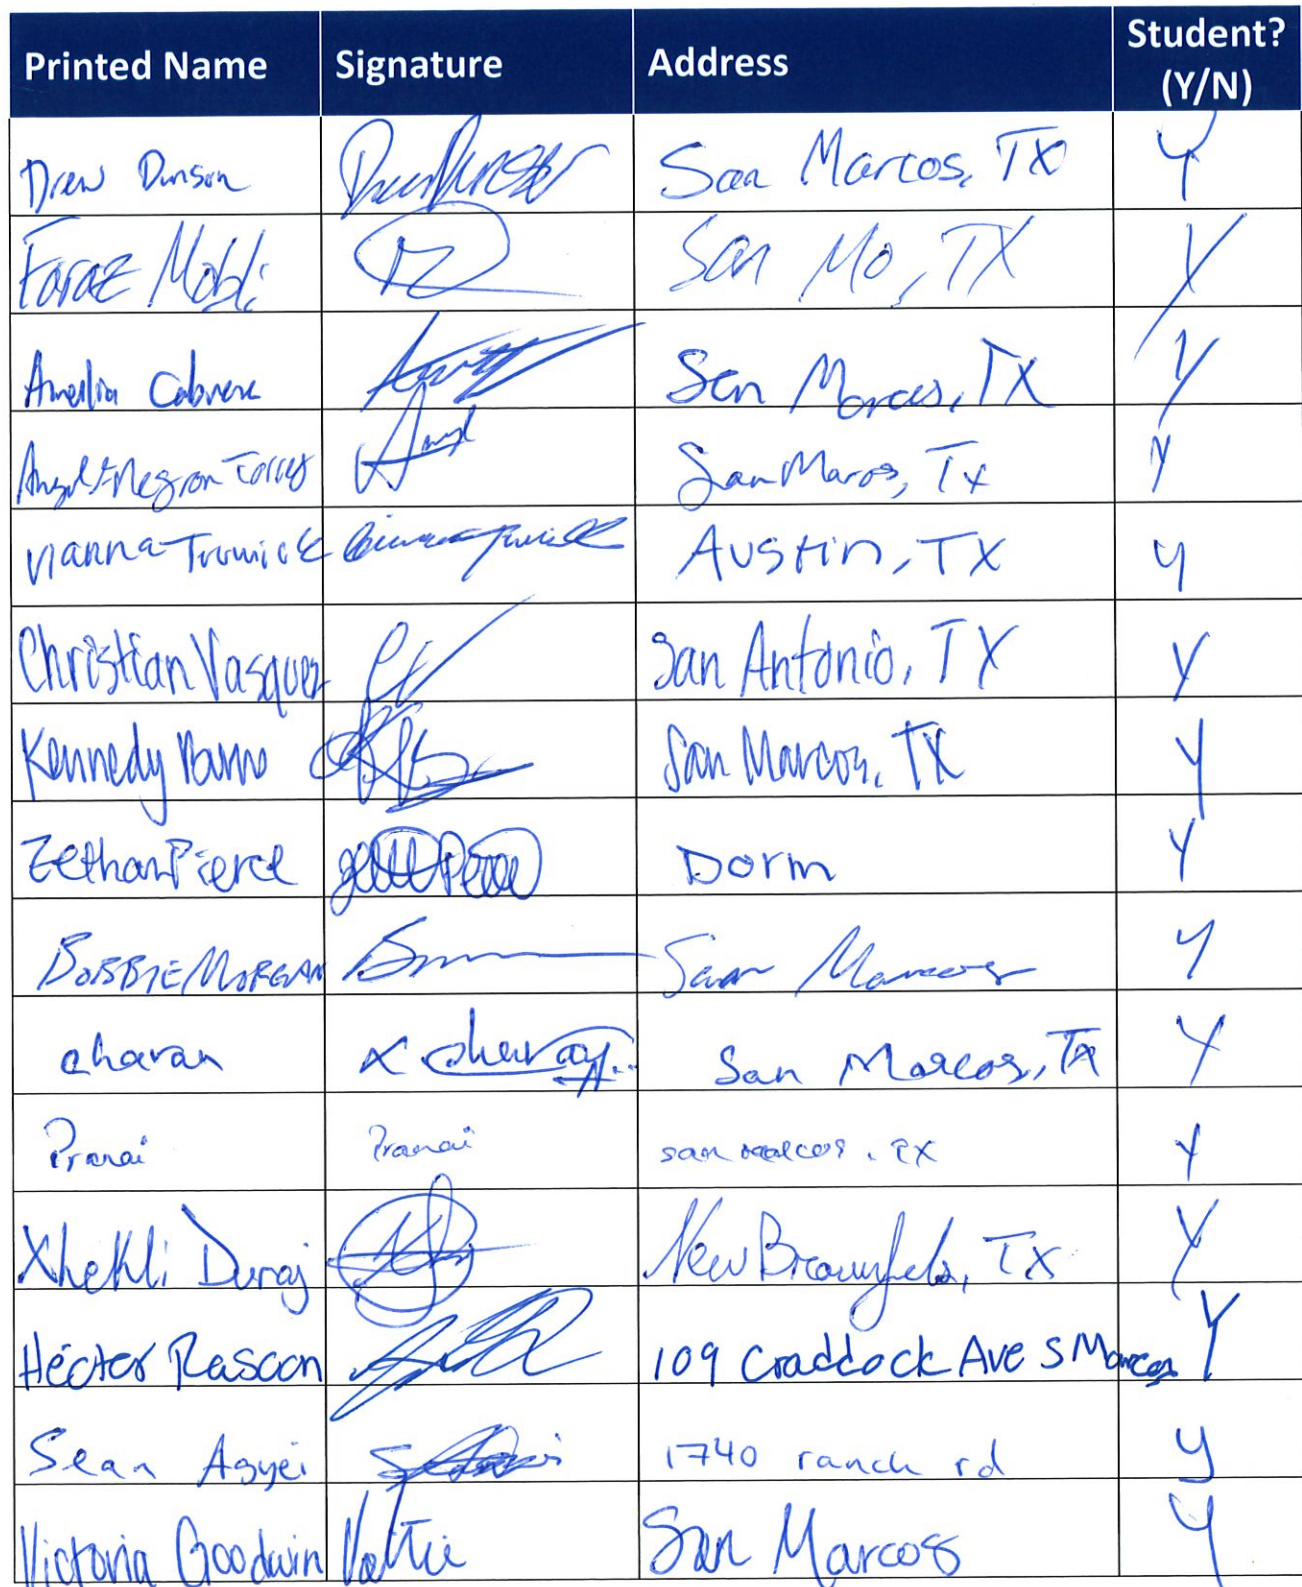 Printed Name Signature Address Student? (Y/N)
Drew Dunson San Marcos, TX Y
Faraz San Mo, TX Y
Amelia Cabrera San Marcos, TX Y
Negron Torres San Maros, Tx Y
Austin, TX y
Christian Vasquez CV San Antonio, TX Y
Kennedy San Marcos, TX Y
Zethan Pierce Dorm Y
BOBBIE MORGAN San Marcos y
charan San Marcos, TX Y
Pranai Pranai san marcos, TX Y
Xhekli Duraj New Braunfels, TX Y
Héctor Rascon 109 Craddock Ave S Marcos Y
Sean Agyei 1740 ranch rd y
Victoria Goodwin San Marcos Y